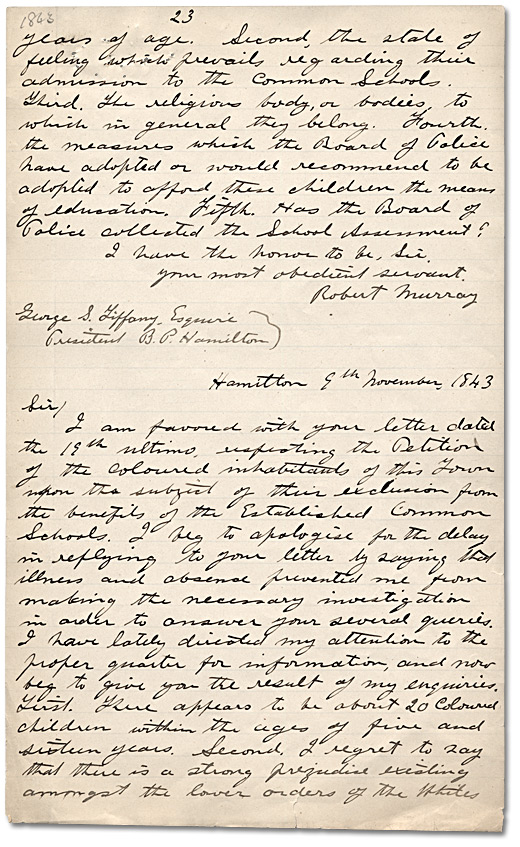 1843
23
years of age. Second, the state of
feeling which prevails regarding their
admission to the Common Schools.
Third. The religious body, or bodies, to
which in general they belong. Fourth.
the measures which the Board of Police
have adopted or would recommend to be
adopted to afford these children the means
of education. Fifth. Has the Board of
Police collected the School Assessment?
I have the honor to be, Sir,
your most obedient servant.
Robert Murray
George S. Tiffany, Esquire
President B.P. Hamilton
Hamilton 9th November, 1843
Sir/
I am favored with your letter dated
the 19th ultimo, respecting the Petition
of the Coloured inhabitants of this Town
upon the subject of their exclusion from
the benefits of the Established Common
Schools. I beg to apologise for the delay
in replying to your letter by saying that
illness and absence prevented me from
making the necessary investigation
in order to answer your several queries.
I have lately directed my attention to the
proper quarter for information, and now
beg to give you the result of my enquiries.
First. There appears to be about 20 Coloured
children within the ages of five and
sixteen years. Second, I regret to say
that there is a strong prejudice existing
amongst the lower orders of the Whites